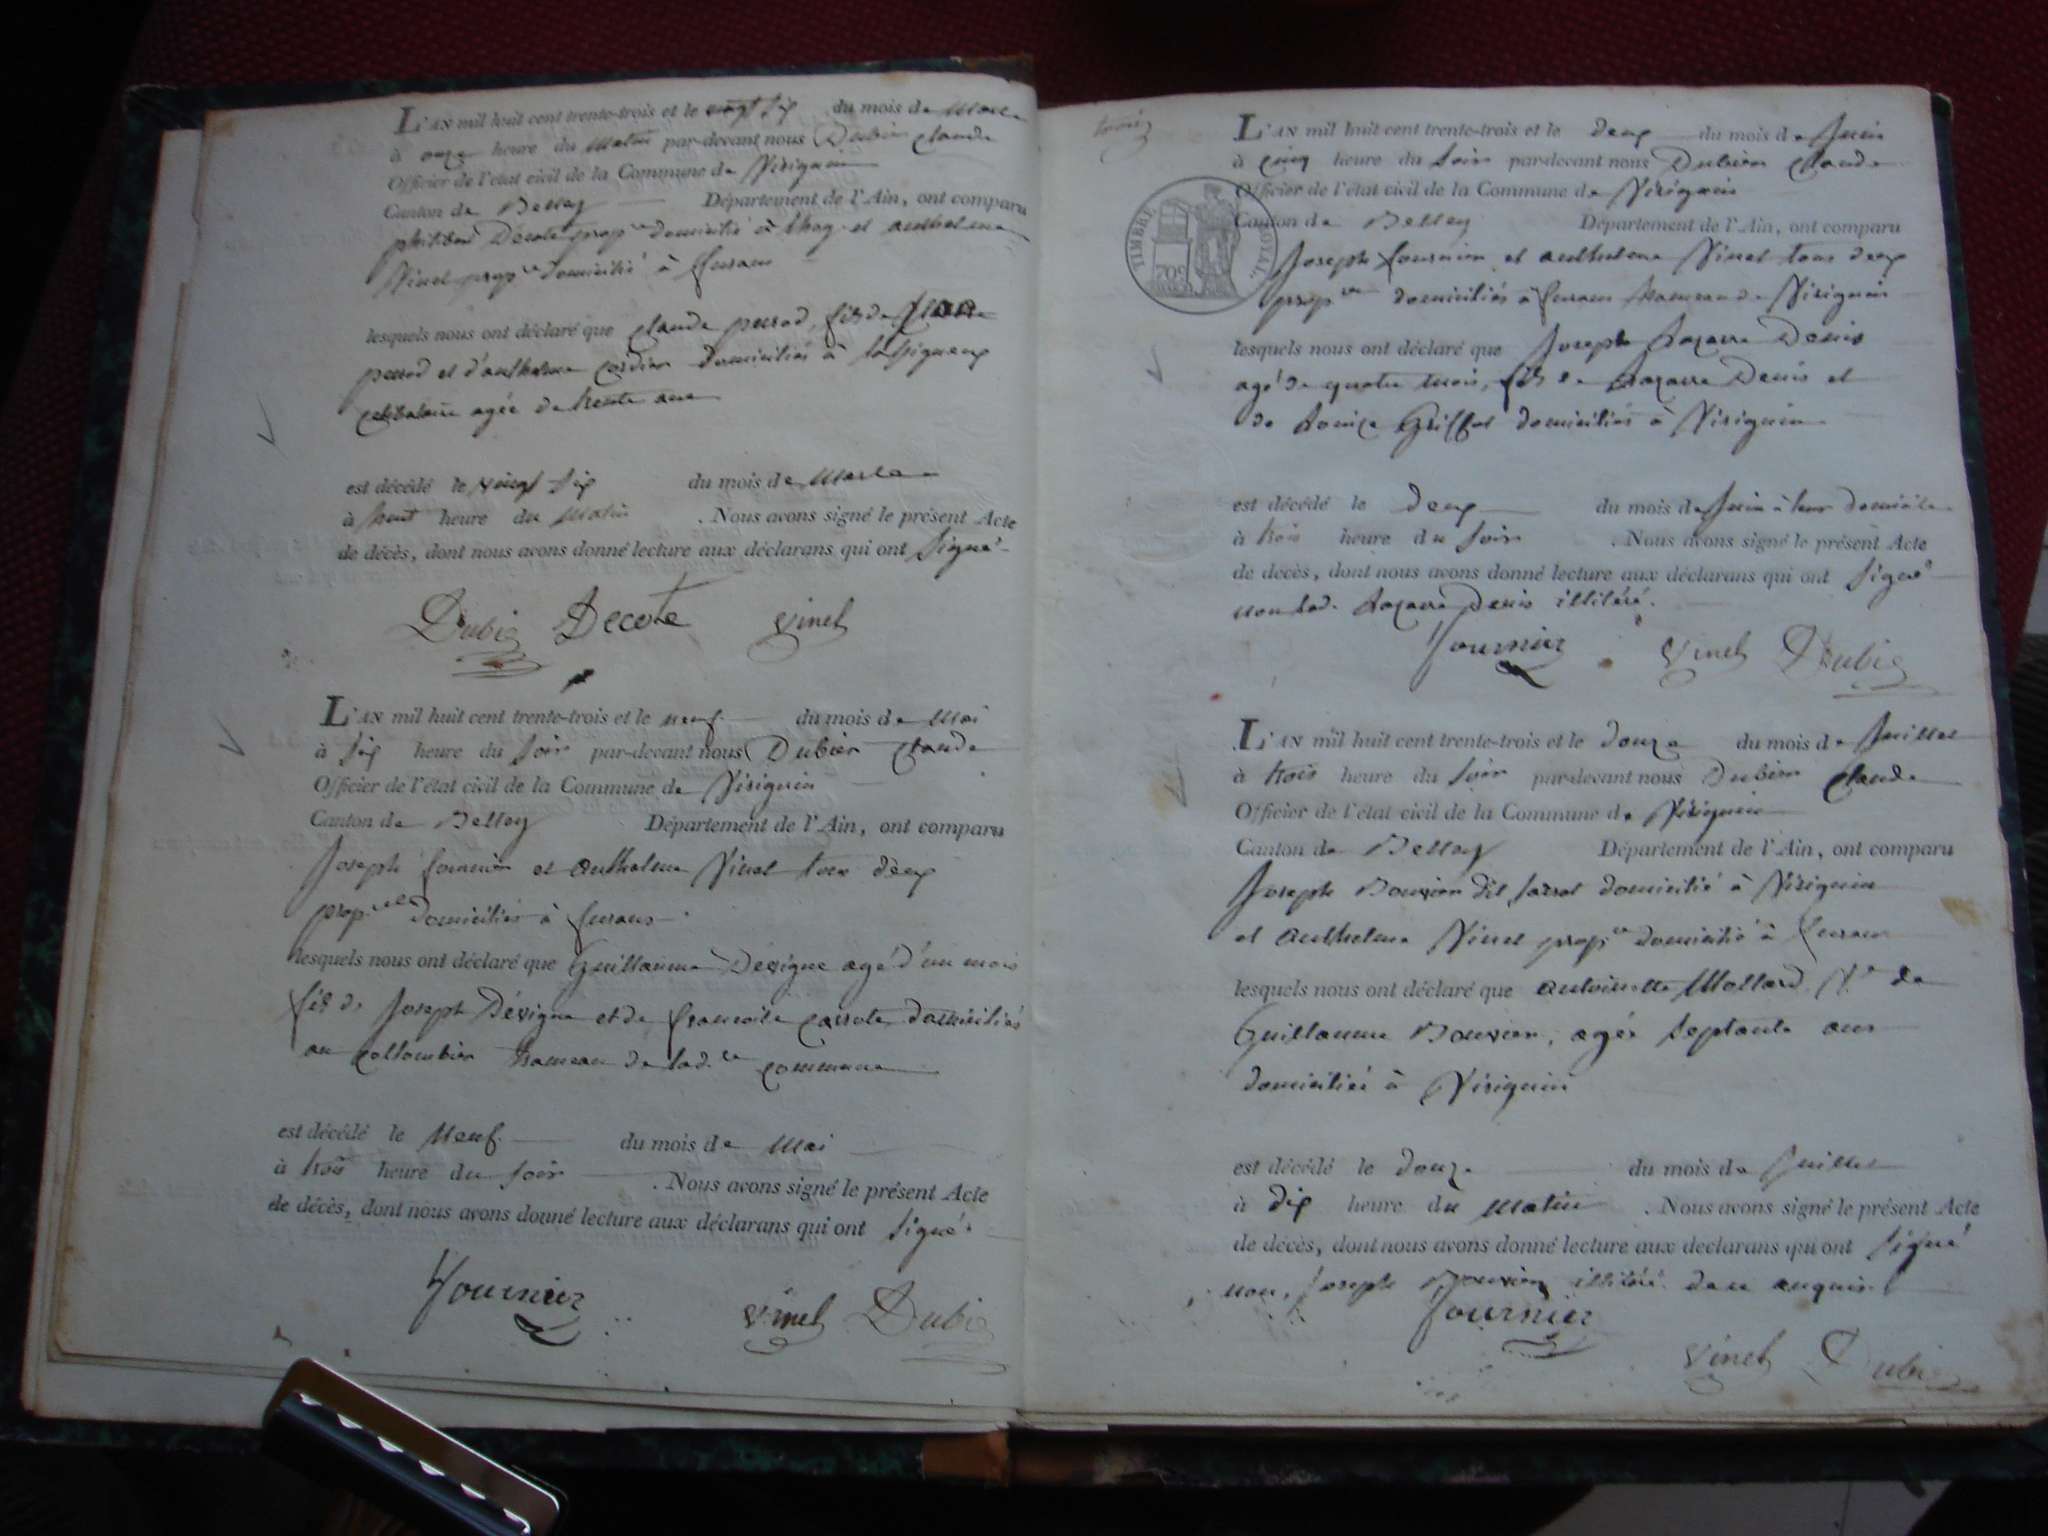 L'AN mil huit cent trente-trois et le vingt six du mois de Mars
à onze heure du Matin par-devant nous Dubien Claude
Officier de l'état civil de la Commune de Virignin
Canton de Belley Département de l'Ain, ont comparu
philibert Decote prop.re domicilié à et anthelme
Vinet prop.re domicilié à
lesquels nous ont déclaré que Claude perrod, fils de
perrod et d'anthelme Cordier domiciliés à
Célibataire agée de trente ans
est décédé le vingt six du mois de Mars
à huit heure du Matin . Nous avons signé le présent Acte
de décès, dont nous avons donné lecture aux déclarans qui ont signé
Dubien Decote Vinet
L'AN mil huit cent trente-trois et le neuf du mois de Mai
à six heure du soir par-devant nous Dubien Claude
Officier de l'état civil de la Commune de Virignin
Canton de Belley Département de l'Ain, ont comparu
Joseph fournier et anthelme Vinet tous deux
prop.res domiciliés à
lesquels nous ont déclaré que Guillaume Dévigne agé d'un mois
fils de Joseph Dévigne et de francoise domiciliés
au Collombier hameau de lad.te Commune
est décédé le Neuf du mois de Mai
à trois heure du soir . Nous avons signé le présent Acte
de décès, dont nous avons donné lecture aux déclarans qui ont signé
fournier Vinet Dubien
TIMBRE ROYAL
709
L'AN mil huit cent trente-trois et le deux du mois de Juin
à cinq heure du soir par-devant nous Dubien Claude
Officier de l'état civil de la Commune de Virignin
Canton de Belley Département de l'Ain, ont comparu
Joseph fournier et anthelme Vinet tous deux
prop.res domiciliés à hameau de Virignin
lesquels nous ont déclaré que Joseph Lazare Denis
agé de quatre mois, fils de Lazare Denis et
de Louise Griffet domiciliés à Virignin
est décédé le deux du mois de Juin à leur domicile
à trois heure du soir . Nous avons signé le présent Acte
de décès, dont nous avons donné lecture aux déclarans qui ont signé
non led. Lazare Denis illitéré.
fournier Vinet Dubien
L'AN mil huit cent trente-trois et le douze du mois de Juillet
à trois heure du soir par-devant nous Dubien Claude
Officier de l'état civil de la Commune de Virignin
Canton de Belley Département de l'Ain, ont comparu
Joseph Bouvier dit domicilié à Virignin
et anthelme Vinet prop.re domicilié à
lesquels nous ont déclaré que antoinette Mollard V.e de
Guillaume Bouvier, agée septante ans
domiciliés à Virignin
est décédé le douze du mois de Juillet
à dix heure du Matin . Nous avons signé le présent Acte
de décès, dont nous avons donné lecture aux déclarans qui ont signé
non, Joseph Bouvier illitéré de ce enquis
fournier
Vinet Dubien